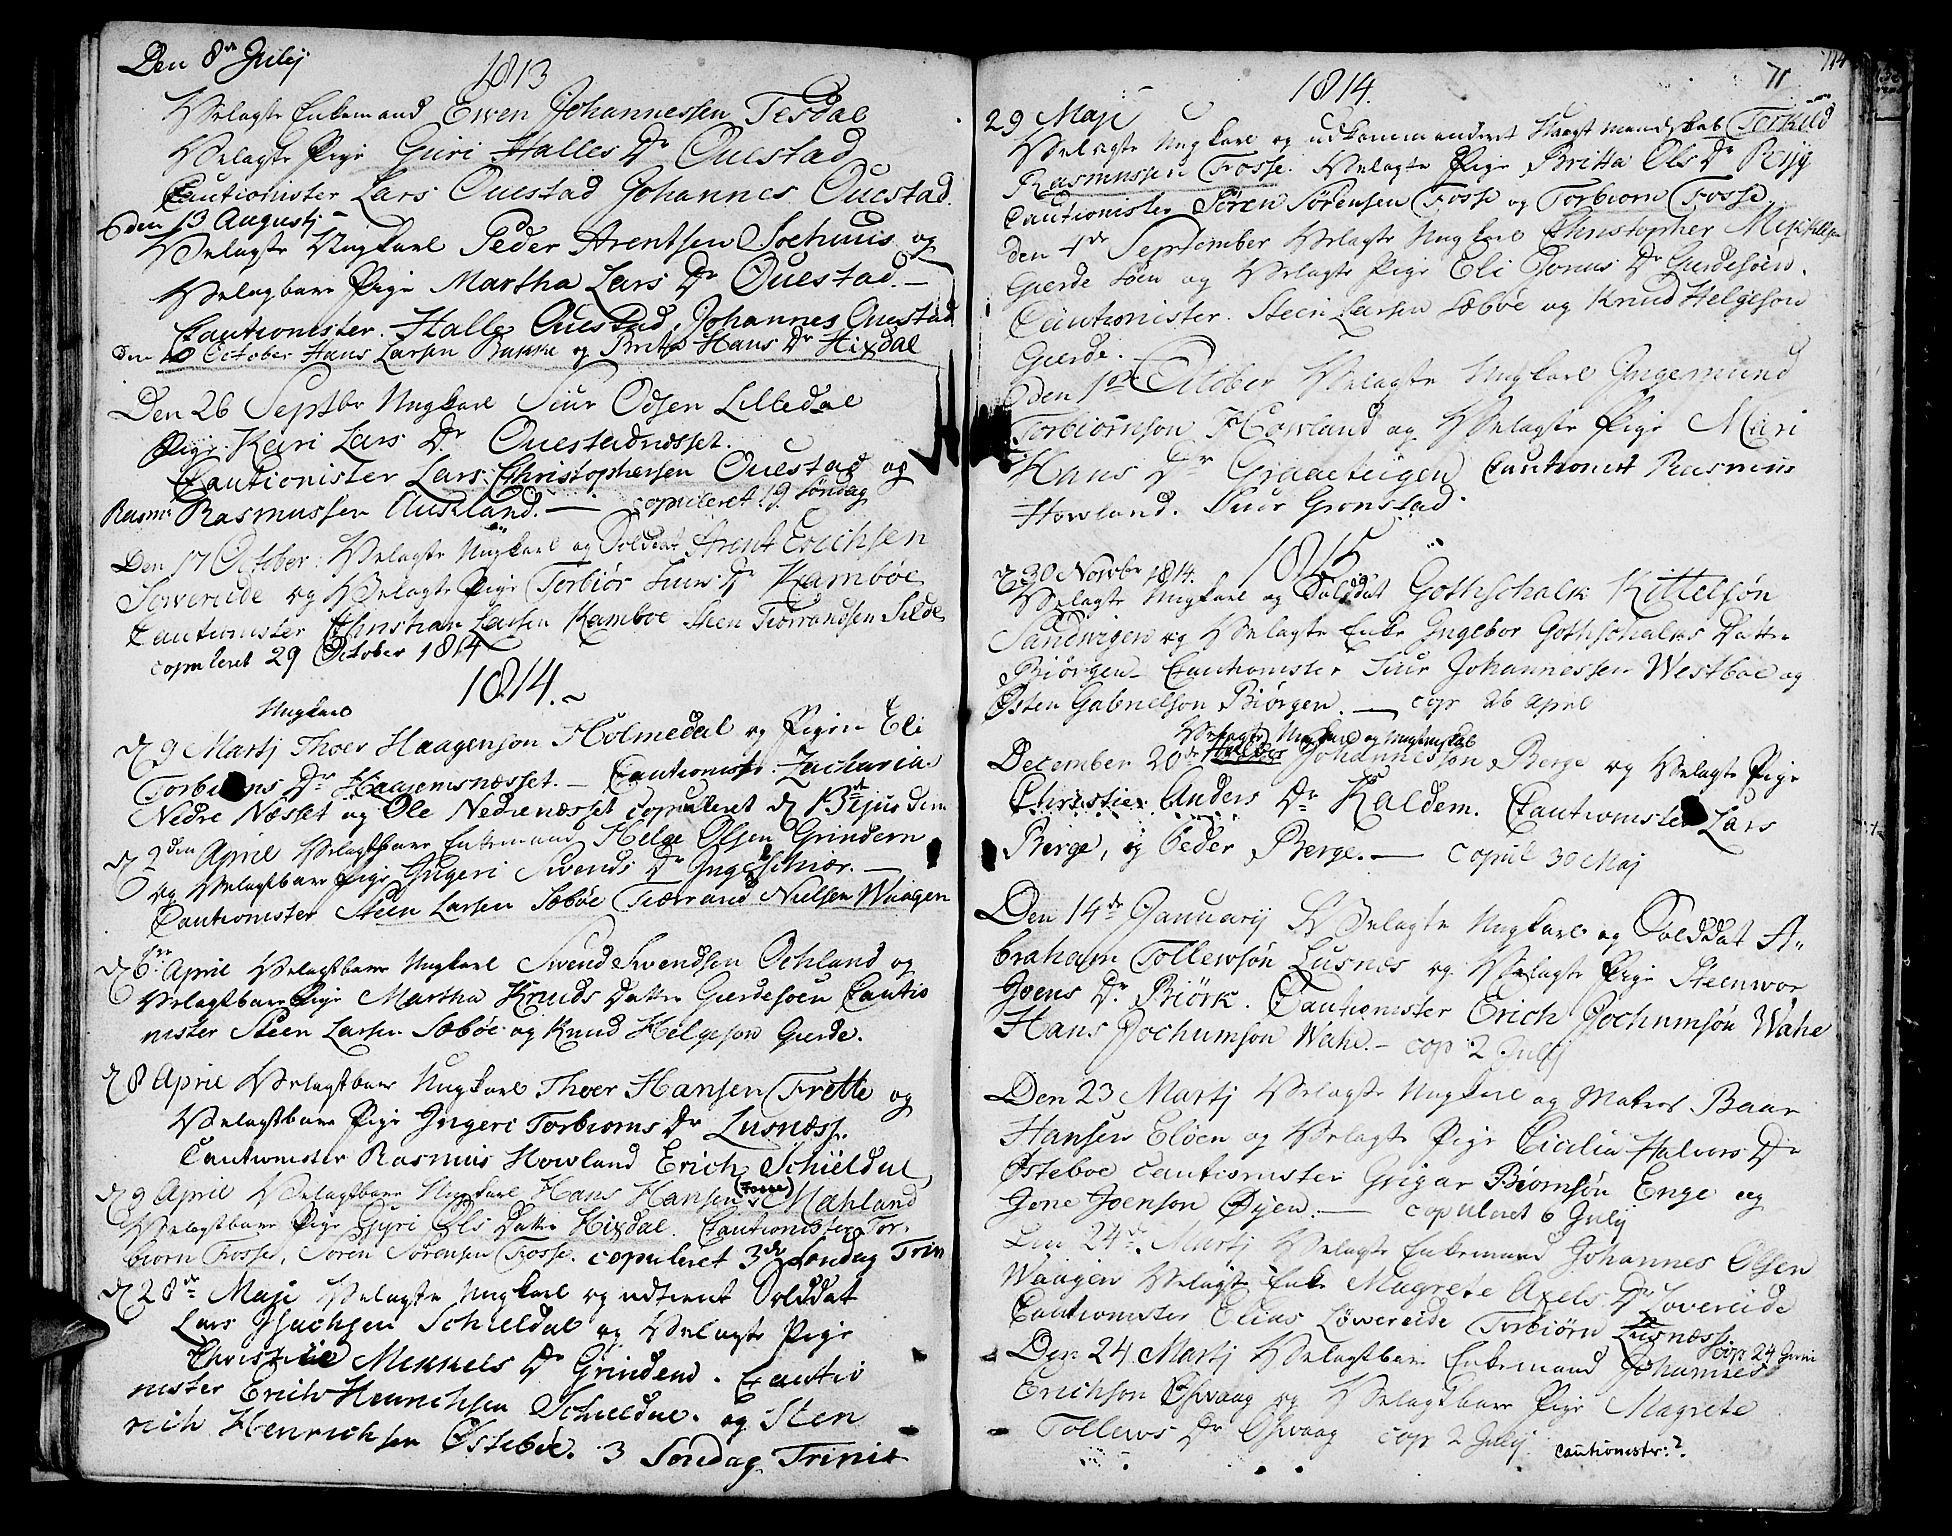 Den 8de Julij
1813
Velagte Enkemand Ewen Johannessen Tesdal
Velagte Pige Guri Halles Dr Ouestad
Cautionister Lars Ouestad Johannes Ouestad.
den 13 Augustj
Velagte Ungkarl Peder Arentsen Sochuus og
Velagtbare Pige Martha Lars Dr Ouestad.
Cautionister. Halle Ouestad, Johannes Ouestad
den October Hans Larsen Bakke og Brita Hans Dr Hixdal
Den 26 Septbr Ungkarl Siur Odsen Lilledal
Pige Kari Lars Dr Ouestadnæsset.
Cautionister Lars Christophersen Ouestad og
Rasms Rasmussen Auskland. — copuleret 19 Søndag
Den 17 October. Velagte Ungkarl og Soldat Arent Erichsen
Lowereide og Velagte Pige Torbiør Lars Dr Kambøe
Cautionister Christian Larsen Kamboe Sten Tiorrandsen Silde
copuleret 29 October 1814
1814.
Ungkarl
d 9 Martj Thoer Haagenson Holmedal og Pigen Eli
Torbiøns Dr Haagemsnæsset. — Cautionister. Zacharia
Nedre Næsset og Ole Nedrenæsset copuleret d
d 2den April Velagtbare Enkemand Helge Olsen Grindem
og Velagtbare Pige Jngeri Swends Dr —
Cautionister Steen Larsen Sæbøe Tiærrand Nielsen Waagen
d 6te April Velagtbare Ungkarl Swend Swendsen Ochland og
Velagtbare Pige Martha Knuds Datter Gierdesøen Cautio
nister Steen Larsen Sæbøe og Knud Helgeson Gierde.
d 8 April Velagtbare Ungkarl Thoer Hansen Frette og
Velagtbare Pige Jngeri Torbiorns Dr Lusnæss.
Cautionister Rasmus Howland Erich Schieldal
d 9 April Velagtbare Ungkarl Hans Hansen (Fosse) Mahland
Velagtbare Pige Gyri Ols Datter Hixdal. Cautionister Tor-
biorn Fosse, Søren Sørensen Fosse. copuleret 3de Søndag Trin
d 28de Maji Velagte Ungkarl og udtient Solddat
Lars Jsachsen Schieldal og Velagte Pige
Mikkels Dr Grindem. Cautio
nister Erich Henrichsen Schieldal. og Sten
rich Henrichsen Østebøe. 3 Søndag Trinit
71
1814.
29 Maji
Velagte Ungkarl og udkommanderet Mandskab Torkild
Rasmussen Fosse. Velagte Pige Britta Ols Dr
Cautionister Søren Sørensen Fosse og Torbiorn Fosse
den 4de September Velagte Ungkarl Christopher
Gierde søen og Velagte Pige Eli Jonas Dr Gierdesøen.
Cautionister. Steen Larsen Sæbøe og Knud Helgeson
Gierde.
den 1ste October Velagte Ungkarl Jngemund
Torbiørnson Howland og Velagte Pige Mari
Hans Dr Graaeteigen Cautionist Rasmus
Howland. Siur Gronstad.
1815
d 30 Novbr 1814.
Velagte Ungkarl og Soldat Gothschalk Kittelsøn
Sandwigen og Velagte Enke Jngebor Gothschalks Datter
Biørgen. Cautionister Siur Johannessen Westbøe og
Østen Gabrielson Biørgen. — cop 26 April
Velagte Ungkarl og
December 20de Johannesson Berge og Velagte Pige
Christie Anders Dr Kaldem. Cautionister Lars
Berge, og Peder Berge. — copul 30 Maj
Den 14de Januarij Velagte Ungkarl og Solddat A-
braham Tollewsøn Lusnæs og Velagte Pige Steenwor
Joens Dr Biørk. Cautionister Erich Jochumsøn Wahe
Hans Jochumsøn Wahe. — cop 2 Julij
Den 23 Martj Velagte Ungkarl og Matros Baar
Hansen Eløen og Velagte Pige Cicilia Halvors Dr
Østebøe Cautionister Grigar Biørnsøn Enge og
Jone Joenson Øyen. — copuleret 6 Julij
Den 24de Martj Velagte Enkemand Johannes Olsen
Waagen Velagte Enke Magrete Axels Dr Lovereide
Cautionister Elias Løwereide Torbiørn Lusnæss.
cop 24 Juni
Den 24 Martj Velagtbare Enkemand Johannes
Erichson Øsvaag og Velagtbare Pige Magrete
Tollews Dr Øsvaag cop 2 Julij. Cautionistr:?